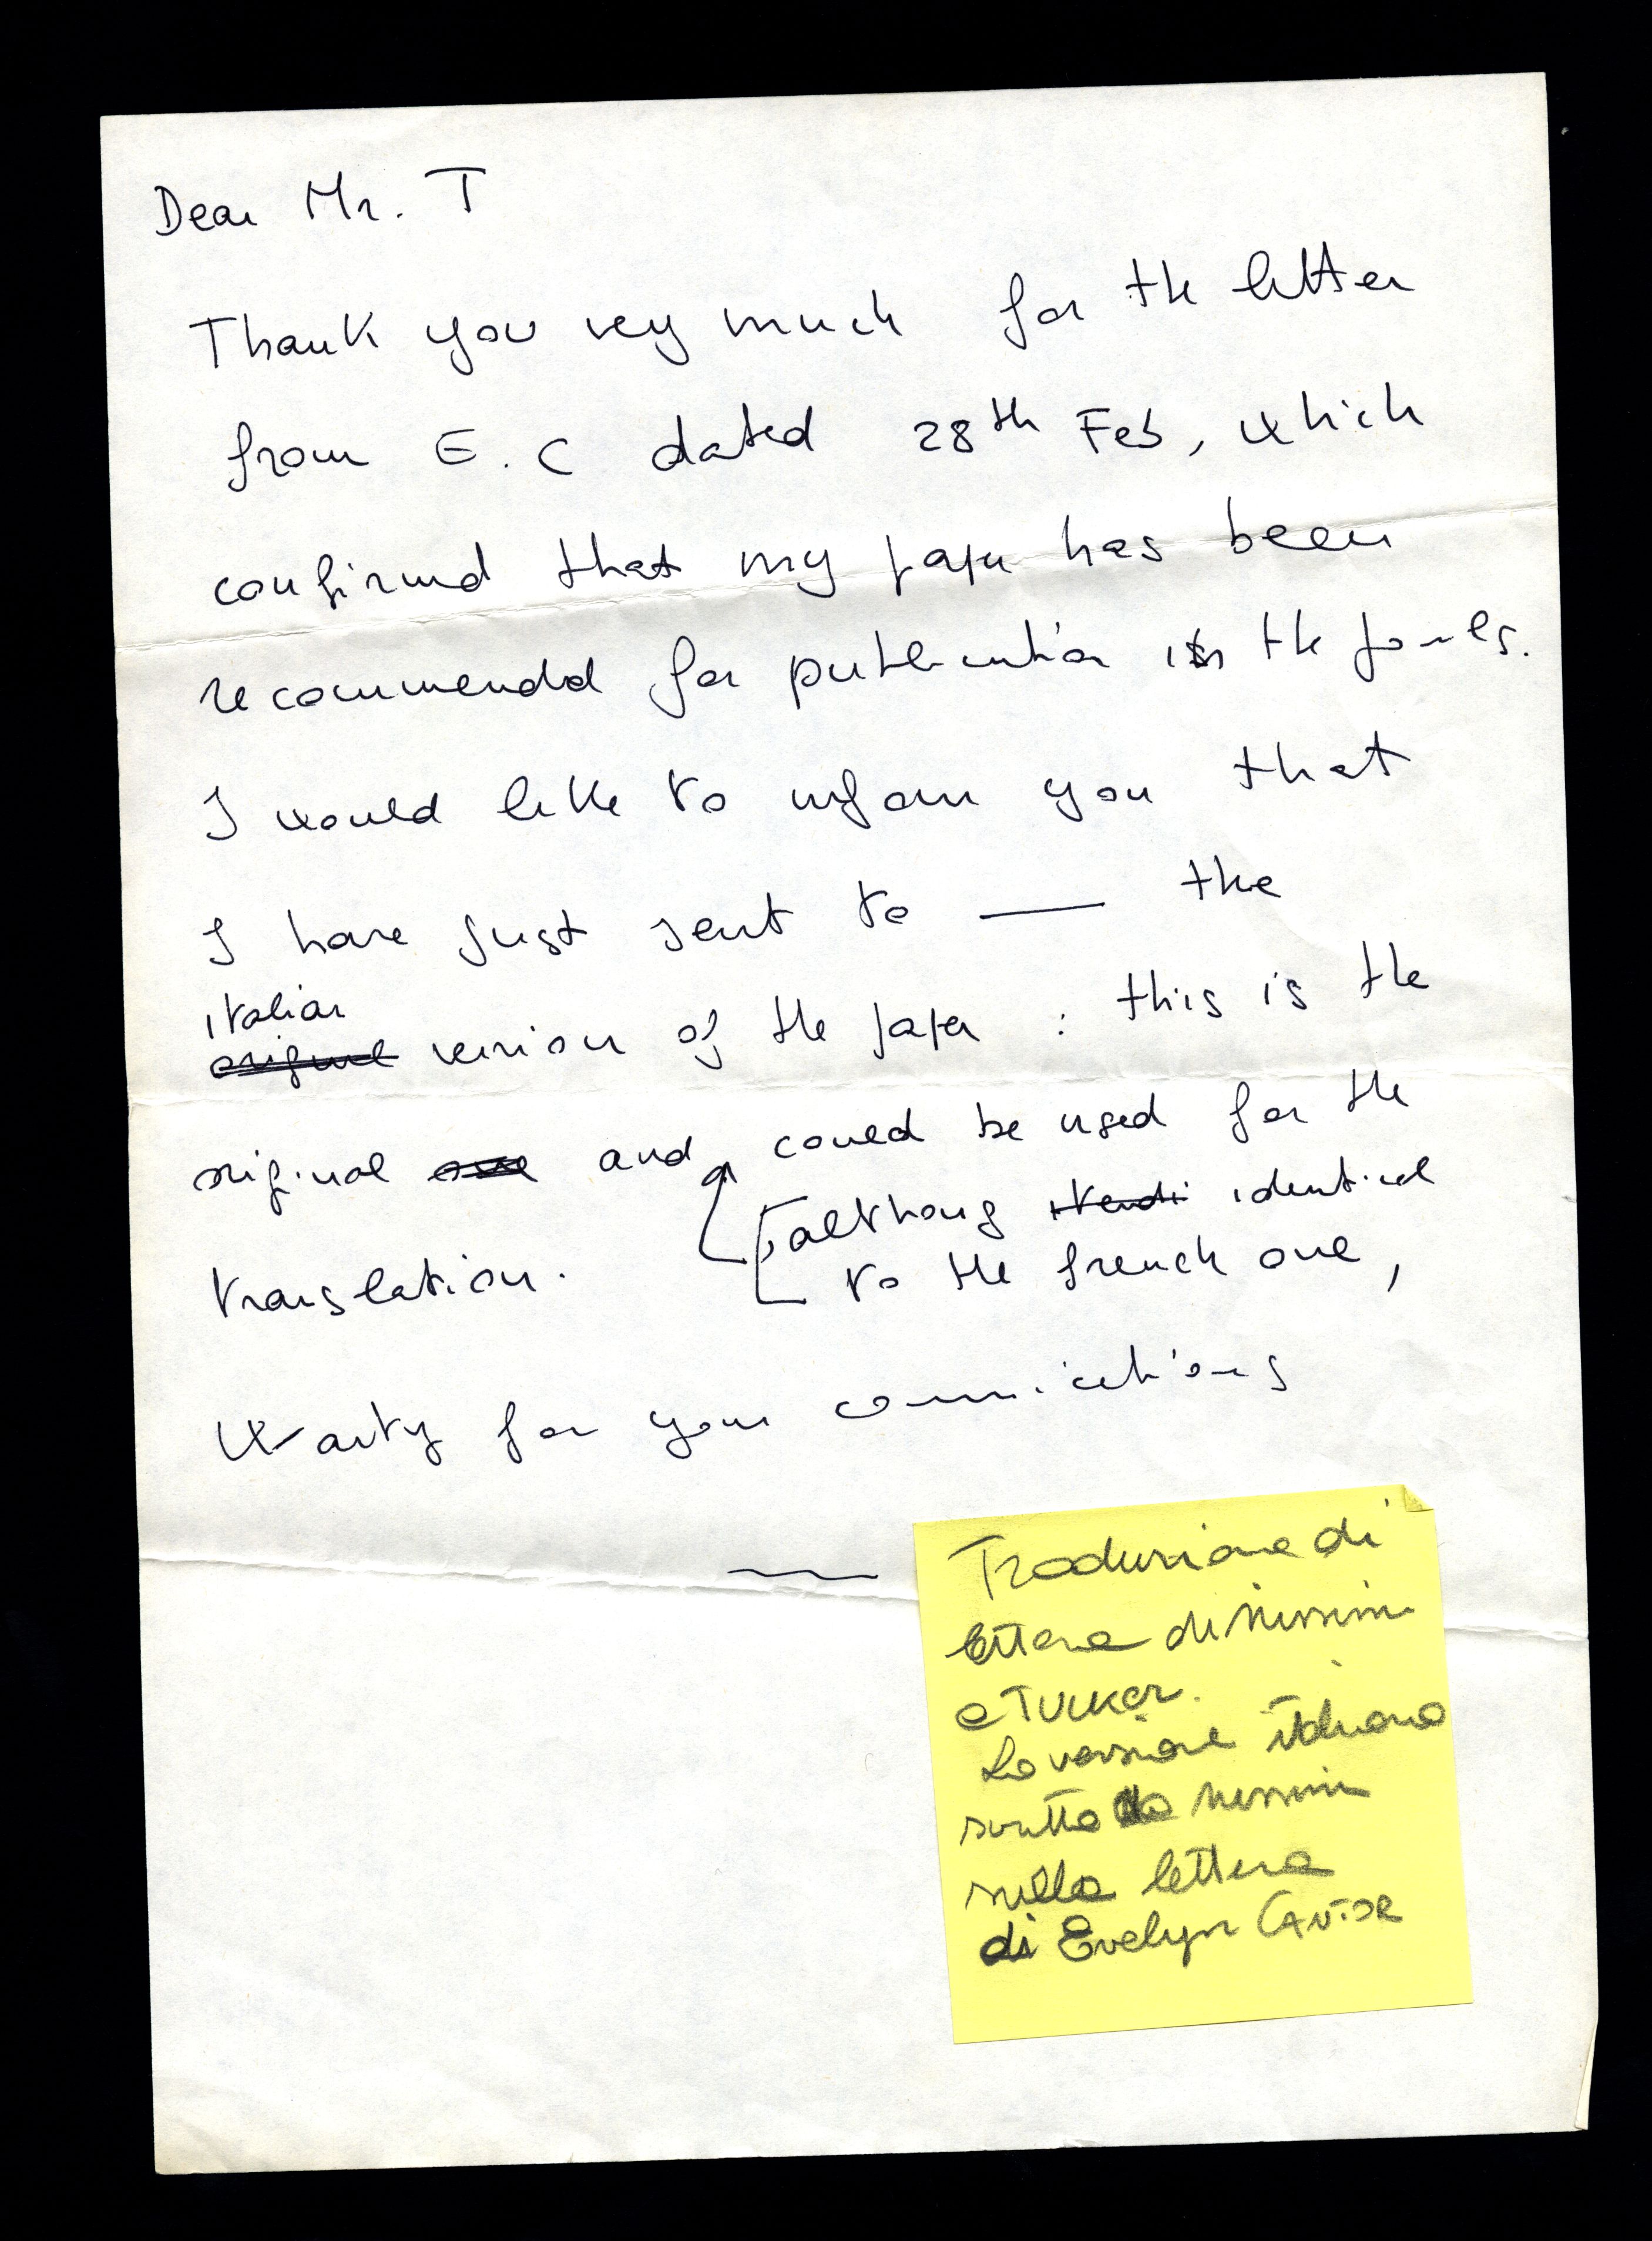 Dear Mr. T
Thank you very much for the letter
from E. C dated 28th Feb, which
confirmed that my paper has been
recommended for publication in the
I would like to inform you that
I have just sent to —— the
italian
original version of the paper : this is the
original one and could be used for the
, althoug identical
translation.
to the french one,
Waitg for your comunications
Traduzione di
lettera di Nissim
a Tucker.
La versione italiana
scritta da Nissim
sulla lettera
di Evelyn